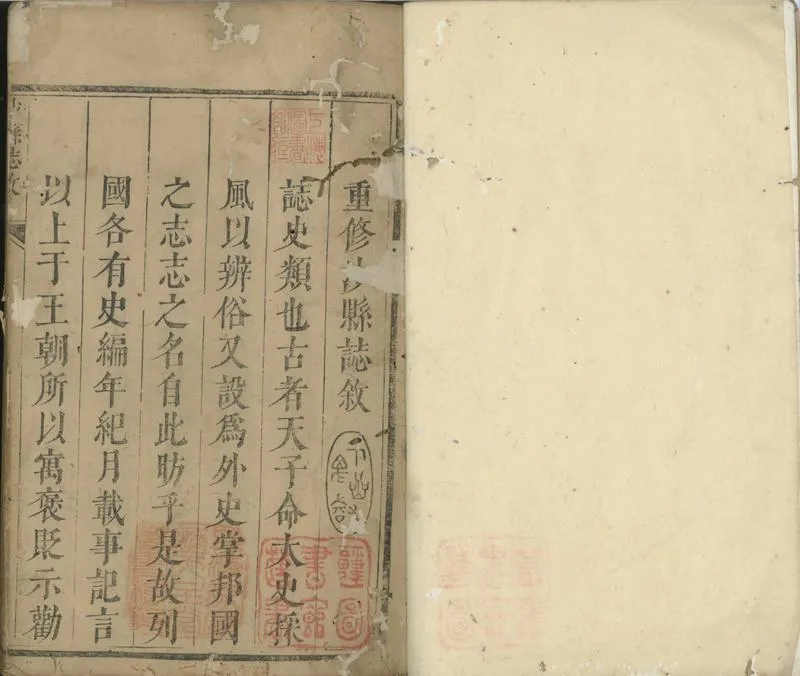 重修沙縣誌敘
誌史類也古者天子命太史採
風以辨俗又設爲外史掌邦國
之志志之名自此昉乎是故列
國各有史編年紀月載事記言
以上于王朝所以寓褒貶示勸
縣志敘